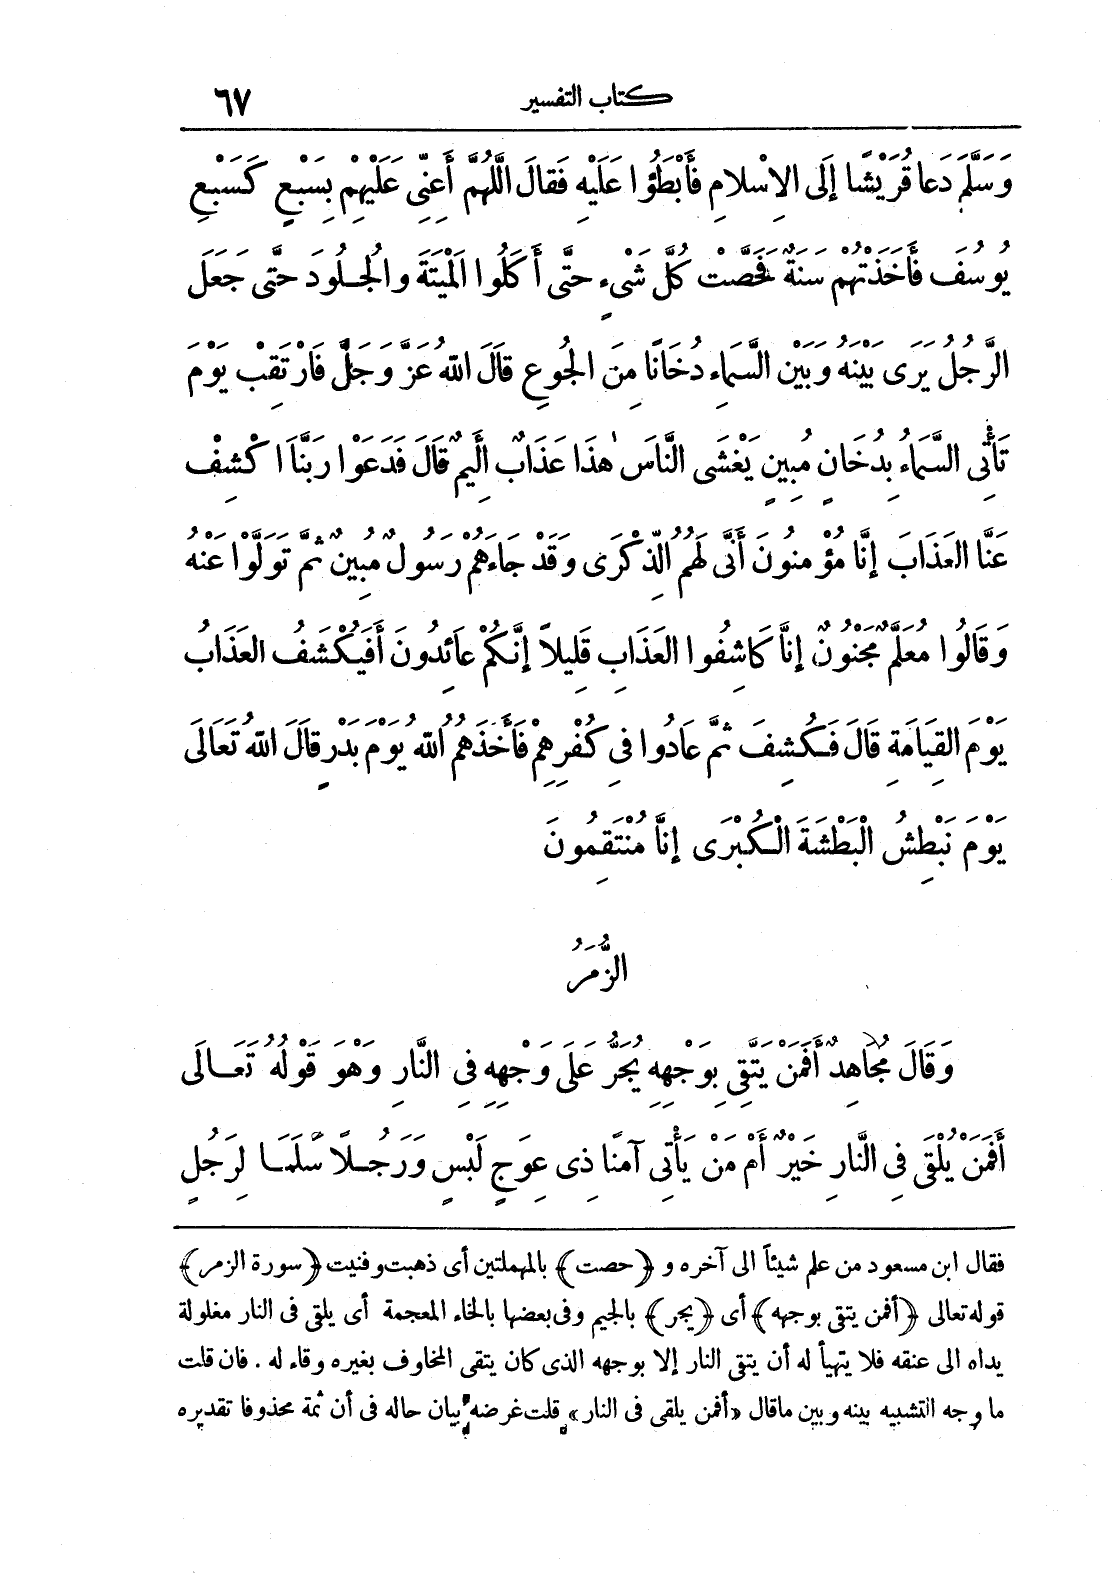 كتاب التفسير ٦٧
وَسَلَّمَ دَعَا قُرَيْشًا إِلَى الإِسْلامِ فَأَبْطَؤُا عَلَيْهِ فَقالَ اللَّهُمَّ أَعِنِّى عَلَيْهِمْ بِسَبْعٍ كَسَبْعِ
يُوسُفَ فَأَخَذَتْهُمْ سَنَةٌ فَحَصَّتْ كُلَّ شَىْءٍ حتَّى أَكَلُوا المَيْتَةَ والجُلُودَ حتَّى جَعَلَ
الرَّجُلُ يَرَى بَيْنَهُ وَبَيْنَ السَّمَاءِ دُخَانًا مِنَ الجُوعِ قالَ اللهُ عَزَّ وَجَلَّ فَارْتَقِبْ يَوْمَ
تَأْتِى السَّمَاءُ بِدُخَانٍ مُبِينٍ يَغْشَى النَّاسَ هٰذَا عَذَابٌ أَلِيمٌ قَالَ فَدَعَوْا رَبَّنَا اكْشِفْ
عَنَّا العَذَابَ إِنَّا مُؤْمِنُونَ أَنَّى لَهُمُ الذِّكْرَى وَقَدْ جَاءَهُمْ رَسُولٌ مُبِينٌ ثُمَّ تَوَلَّوْا عَنْهُ
وَقَالُوا مُعَلَّمٌ مَجْنُونٌ إِنَّا كَاشِفُوا العَذَابِ قَلِيلاً إِنَّكُمْ عَائِدُونَ أَفَيُكْشَفُ العَذَابُ
يَوْمَ القِيَامَةِ قَالَ فَكُشِفَ ثُمَّ عَادُوا فِى كُفْرِهِمْ فَأَخَذَهُمُ اللهُ يَوْمَ بَدْرٍ قالَ اللهُ تَعَالَى
يَوْمَ نَبْطِشُ الْبَطْشَةَ الْكُبْرَى إِنَّا مُنْتَقِمُونَ
الزُّمَرُ
وَقَالَ مُجَاهِدٌ أَفَمَنْ يَتَّقِى بِوَجْهِهِ يُجَرُّ عَلَى وَجْهِهِ فِى النَّارِ وَهْوَ قَوْلُهُ تَعَالَى
أَفَمَنْ يُلْقَى فِى النَّارِ خَيْرٌ أَمْ مَنْ يَأْتِى آمنًا ذِى عِوَجٍ لَبْسٍ وَرَجُلاً سَلَمًا لِرَجُلٍ
فقال ابن مسعود من علم شيئاً الى آخره و ﴿حصت﴾ بالمهملتين أى ذهبت وفنيت ﴿سورة الزمر﴾
قوله تعالى ﴿أفمن يتقى بوجهه﴾ أى ﴿يجر﴾ بالجيم وفى بعضها بالخاء المعجمة أى يلقى فى النار مغلولة
يداه الى عنقه فلا يتهيأ له أن يتقى النار إلا بوجهه الذى كان يتقى المخاوف بغيره وقاء له . فان قلت
ما وجه التشبيه بينه وبين ماقال «أفمن يلقى فى النار» قلت غرضه بيان حاله فى أن ثمة محذوفا تقديره